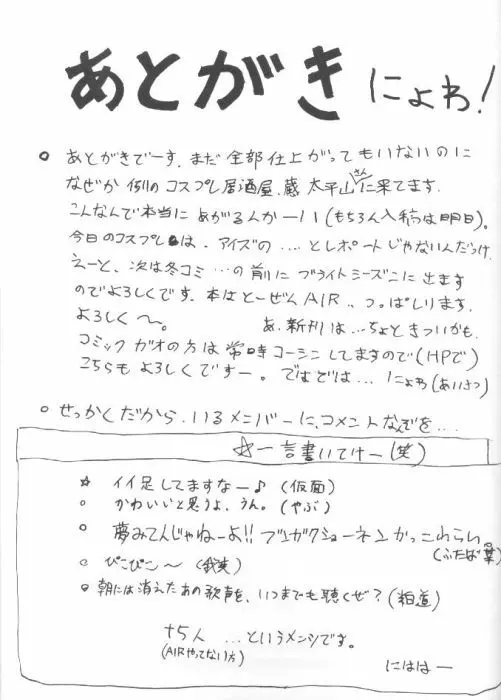 あとがき にょわ!
○ あとがきでーす、まだ全部仕上がってもいないのに
なぜか例のコスプレ居酒屋、蔵太平山さんに来てます。
こんなんで本当にあがるんかーい(もちろん入稿は明日)。
今日のコスプレは、アイズの … とレポートじゃないんだっけ、
えーと、次は冬コミ …の前にブライトシーズンに出ます
のでよろしくです。本はとーぜんAIR、つっぱしります。
よろしく〜。 あ、新刊は…ちょときついかも、
コミックガオの方は常時コーシンしてますので(HPで)
こちらもよろしくですー。ではでは… にょわ(あいさつ)
○ せっかくだから、いるメンバーに、コメントなんぞを…
☆一言書いてけー(笑)
☆ イイ足してますなー♪ (仮面)
○ かわいいと思うよ、うん。(やぶ)
○ 夢みてんじゃねーよ!! ブンガクショーネンかっこわらい
(ふたば葉)
○ ぴこぴこ〜
○ 朝には消えたあの歌声を、いつまでも聴くぜ?
+5人 …というメンツです。
(AIRやってない方)
にははー